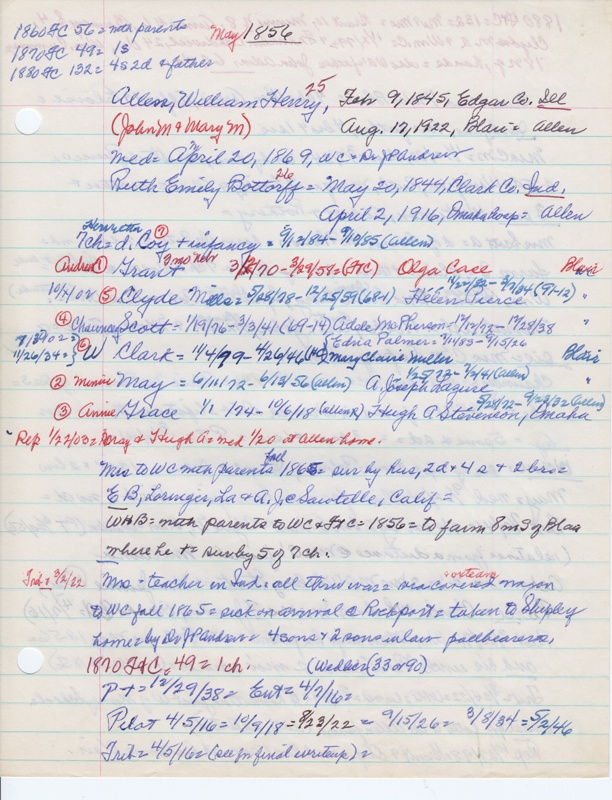 1860 FtC 56 = with parents
May 1856
1870 FtC 49 = 1s
1880 FtC 132 = 4s 2d & father
Allen, William Henry, 25 Feb 9, 1845, Edgar Co. Ill
(John M & Mary M) Aug. 17, 1922, Blair = Allen
med = April 20, 1869, WC = Dr JP Andrew
Ruth Emily Bottorff 26 = May 20, 1844, Clark Co, Ind.
April 2, 1916, Omaha = Allen
Henrietta
7ch = d. Coy ⑦ + infancy = 9/12/84 - 9/19/85 (Allen)
3 mo Nebr
Andrew ① Grant 3/ /70 - 3/29/58 = (FtC) Olga Case Blair
10/4/02 ⑤ Clyde Mills = 5/28/78 - 12/25/59 (68-1) Helen Pierce "
④ Chauncey Scott = 1/19/76 - 3/3/41 (69-14) Adda McPherson = 12/12/72 - 12/28/38 "
Edna Palmer =
11/26/34 = ⑥ W Clark = 11/4/99 - 4/26/46 Mary Claire Miller Blair
② Minnie May = 6/11/72 - 6/12/56 (Allen) A. Joseph Lazure
③ Annie Grace 1/1 /74 - 10/6/18 (Allen) Hugh A Stevenson, Omaha
Rep 1/22/03 = Gray & Hugh A = med 1/20 at Allen home.
Mrs to WC with parents fall 1865 = sur by hus, 2d & 4 s & 2 bro =
E B, Loringer, La & A, J, C Sawtelle, Calif =
WHB = with parents to WC & FtC = 1856 = to farm 8m S of Blair
where he + = sur by 5 of 7 ch.
Trib + 3/2/22 Mrs = teacher in Ind = all three were = via covered wagon
to WC fall 1865 = sick on arrival @ Rockport = taken to Shipley
home = by Dr JP Andrew = 4 sons & 2 sons in law pallbearers.
1870 FtC. 49 = 1 ch. (Web 33 or 90)
P + = 12/29/38 = Ent = 4/7/16 =
Pilot 4/5/16 = 10/9/18 = 8/23/22 = 9/15/26 = 3/8/34 = 5/2/46
Trib = 4/5/16 = (see for final writeup) =